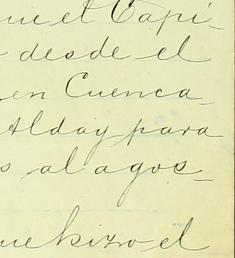 ue el Capi-
desde el
en Cuenca-
Alday para
s al agos-
ue hizo el